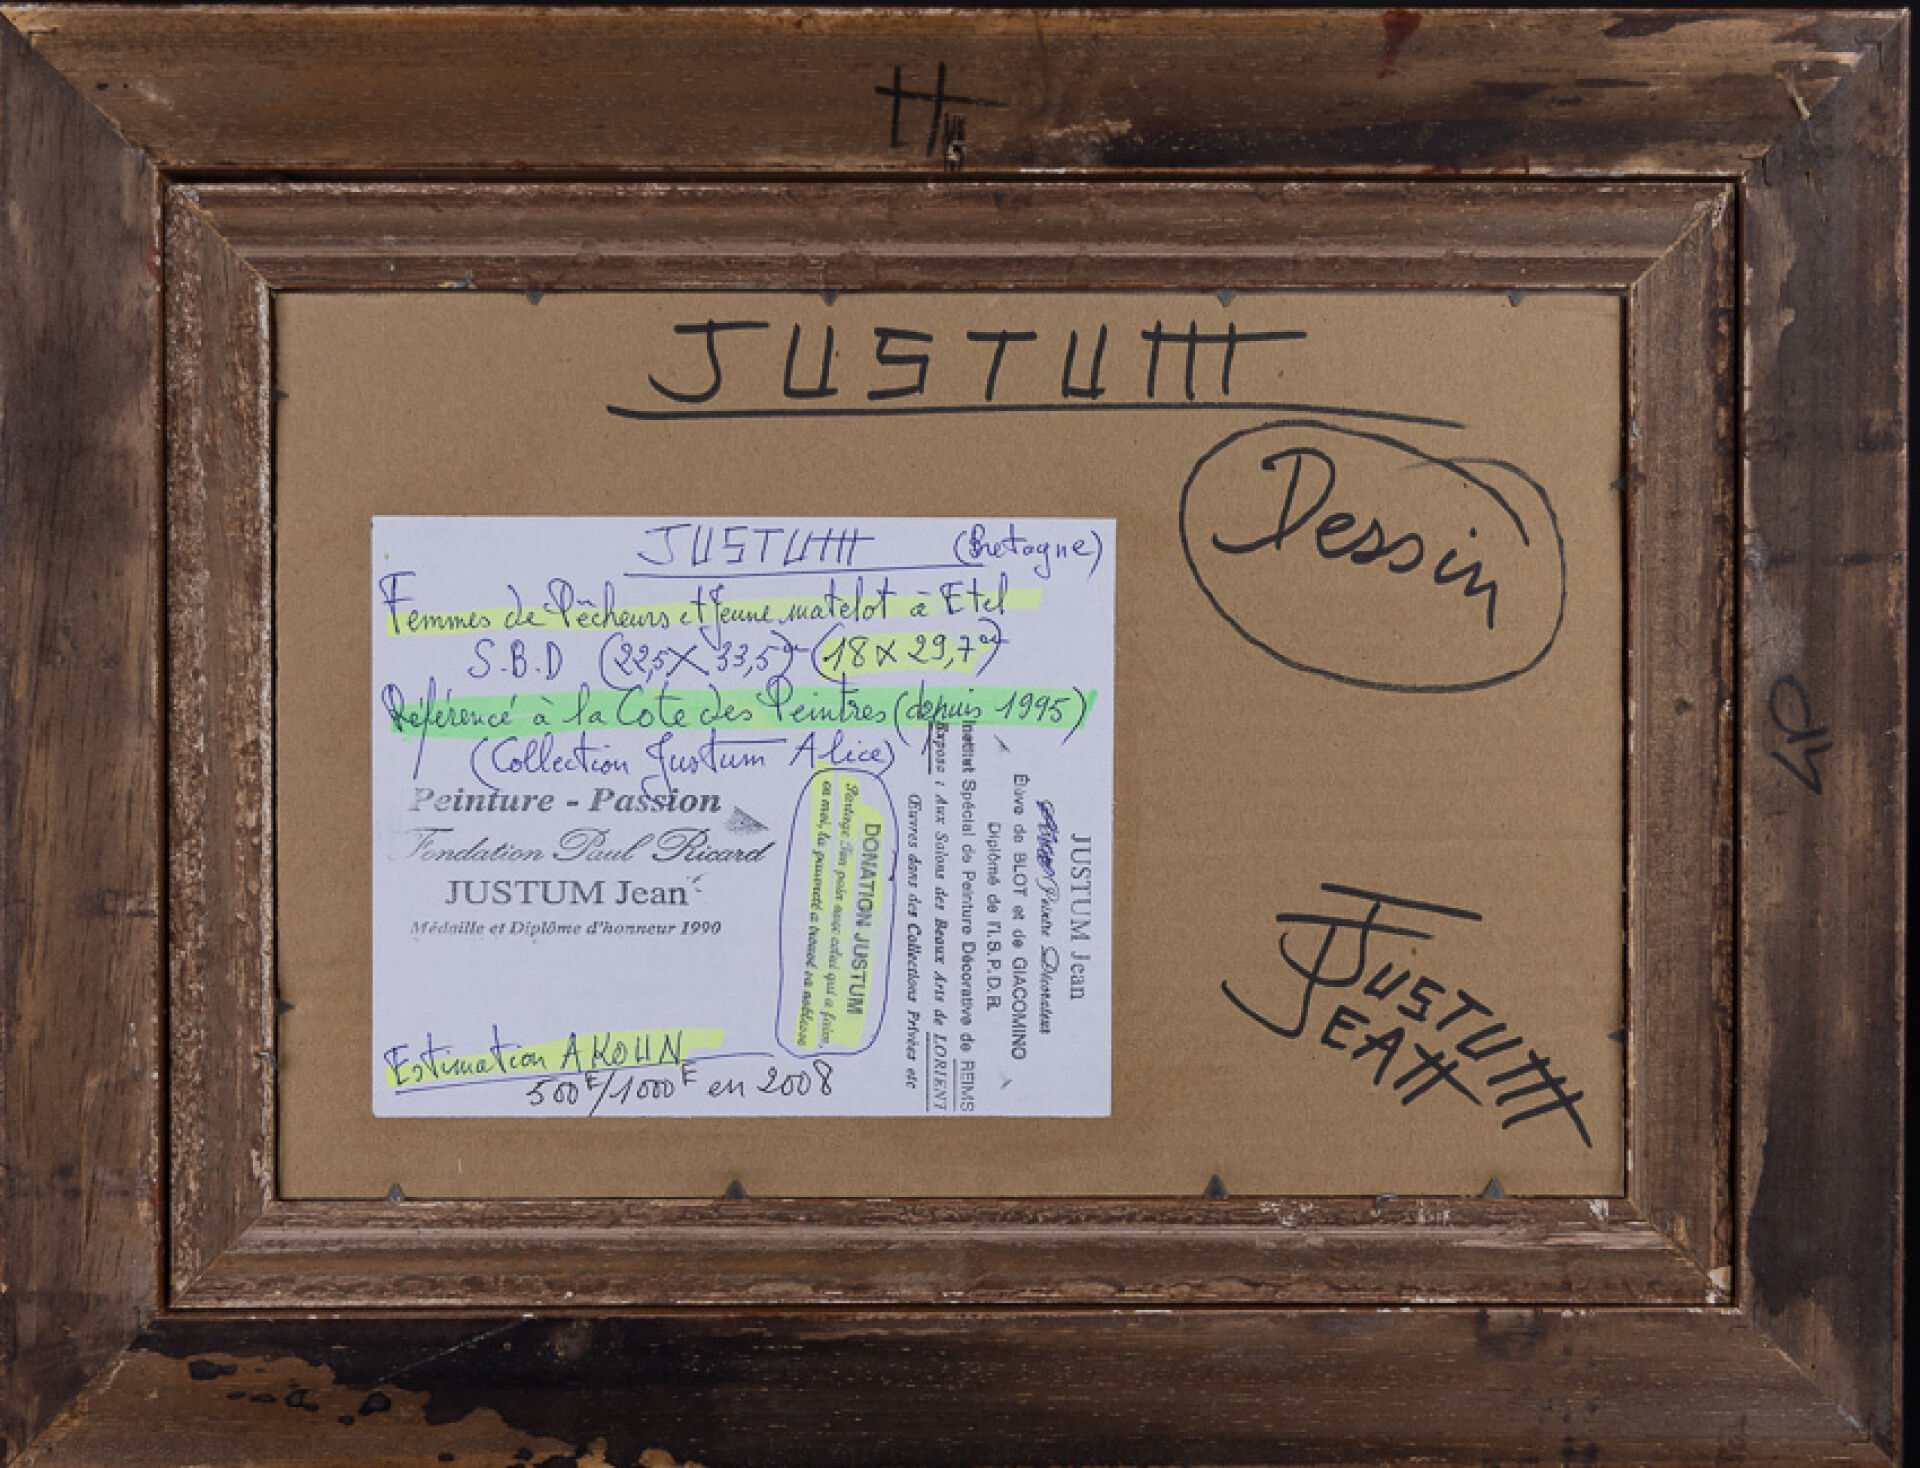 H
JUSTUM
Dessin
JUSTUM (Bretagne)
Femmes de Pêcheurs et Jeune matelot à Etel
S.B.D (22,5 X 33,5) (18 X 29,7)
Référencé à la Cote des Peintres (depuis 1995)
(Collection Justum Alice)
Peinture - Passion
Fondation Paul Ricard
JUSTUM Jean
Médaille et Diplôme d'honneur 1990
DONATION JUSTUM
Partage Ton pain avec celui qui a faim,
en moi, la pauvreté a trouvé sa noblesse
JUSTUM Jean
Peintre Décorateur
Élève de BLOT et de GIACOMINO
Diplômé de l'I.S.P.D.R.
Institut Spécial de Peinture Décorative de REIMS
Expose : Aux Salons des Beaux Arts de LORIENT
Œuvres dans des Collections Privées etc
Estimation AKOUN
500€/1000€ en 2008
JUSTUM
JEAN